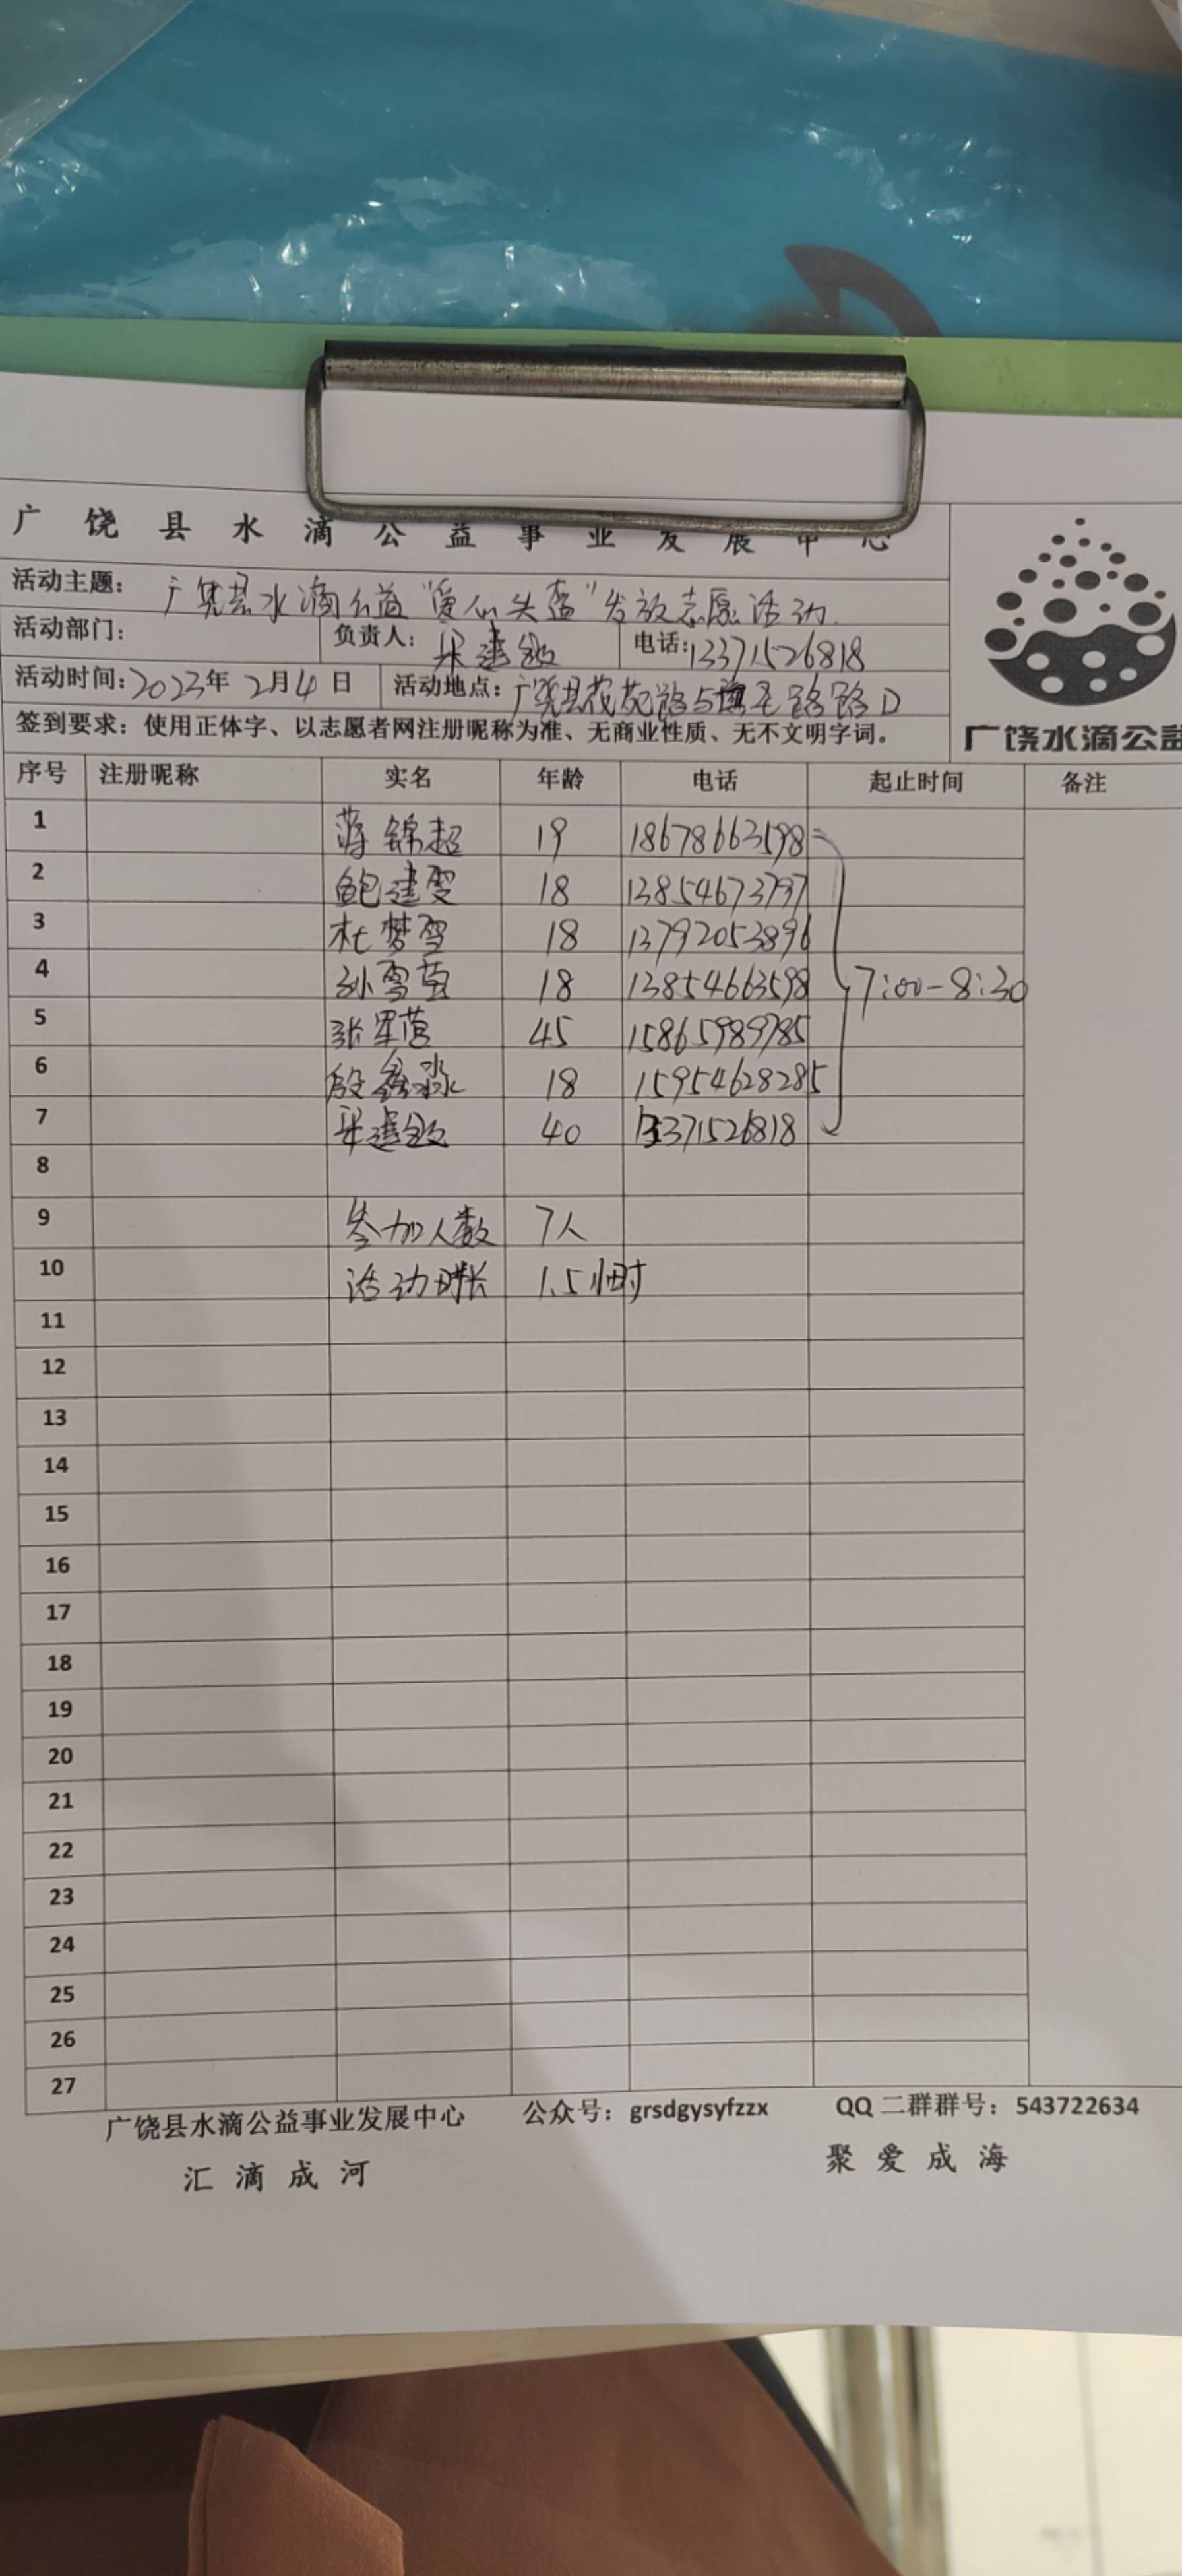 广饶县水滴公益事业发展中心
活动主题：广饶县水滴公益“爱心头盔”发放志愿活动.
活动部门： 负责人：建敏 电话：13371526818
活动时间：2023年2月4日 活动地点：广饶县花苑路与路路口
签到要求：使用正体字、以志愿者网注册昵称为准、无商业性质、无不文明字词。
广饶水滴公益
序号 注册昵称 实名 年龄 电话 起止时间 备注
1 蒋锦超 19 18678663598
2 鲍建雯 18 13854673797
3 杜梦雪 18 13792053896
4 孙雪莹 18 13854663598 7:00-8:30
5 张星营 45 15865989785
6 殷鑫淼 18 15954628285
7 建敏 40 13371526818
8
9 参加人数 7人
10 活动时长 1.5小时
11
12
13
14
15
16
17
18
19
20
21
22
23
24
25
26
27
广饶县水滴公益事业发展中心 公众号：grsdgysyfzzx QQ 二群群号：543722634
汇滴成河 聚爱成海